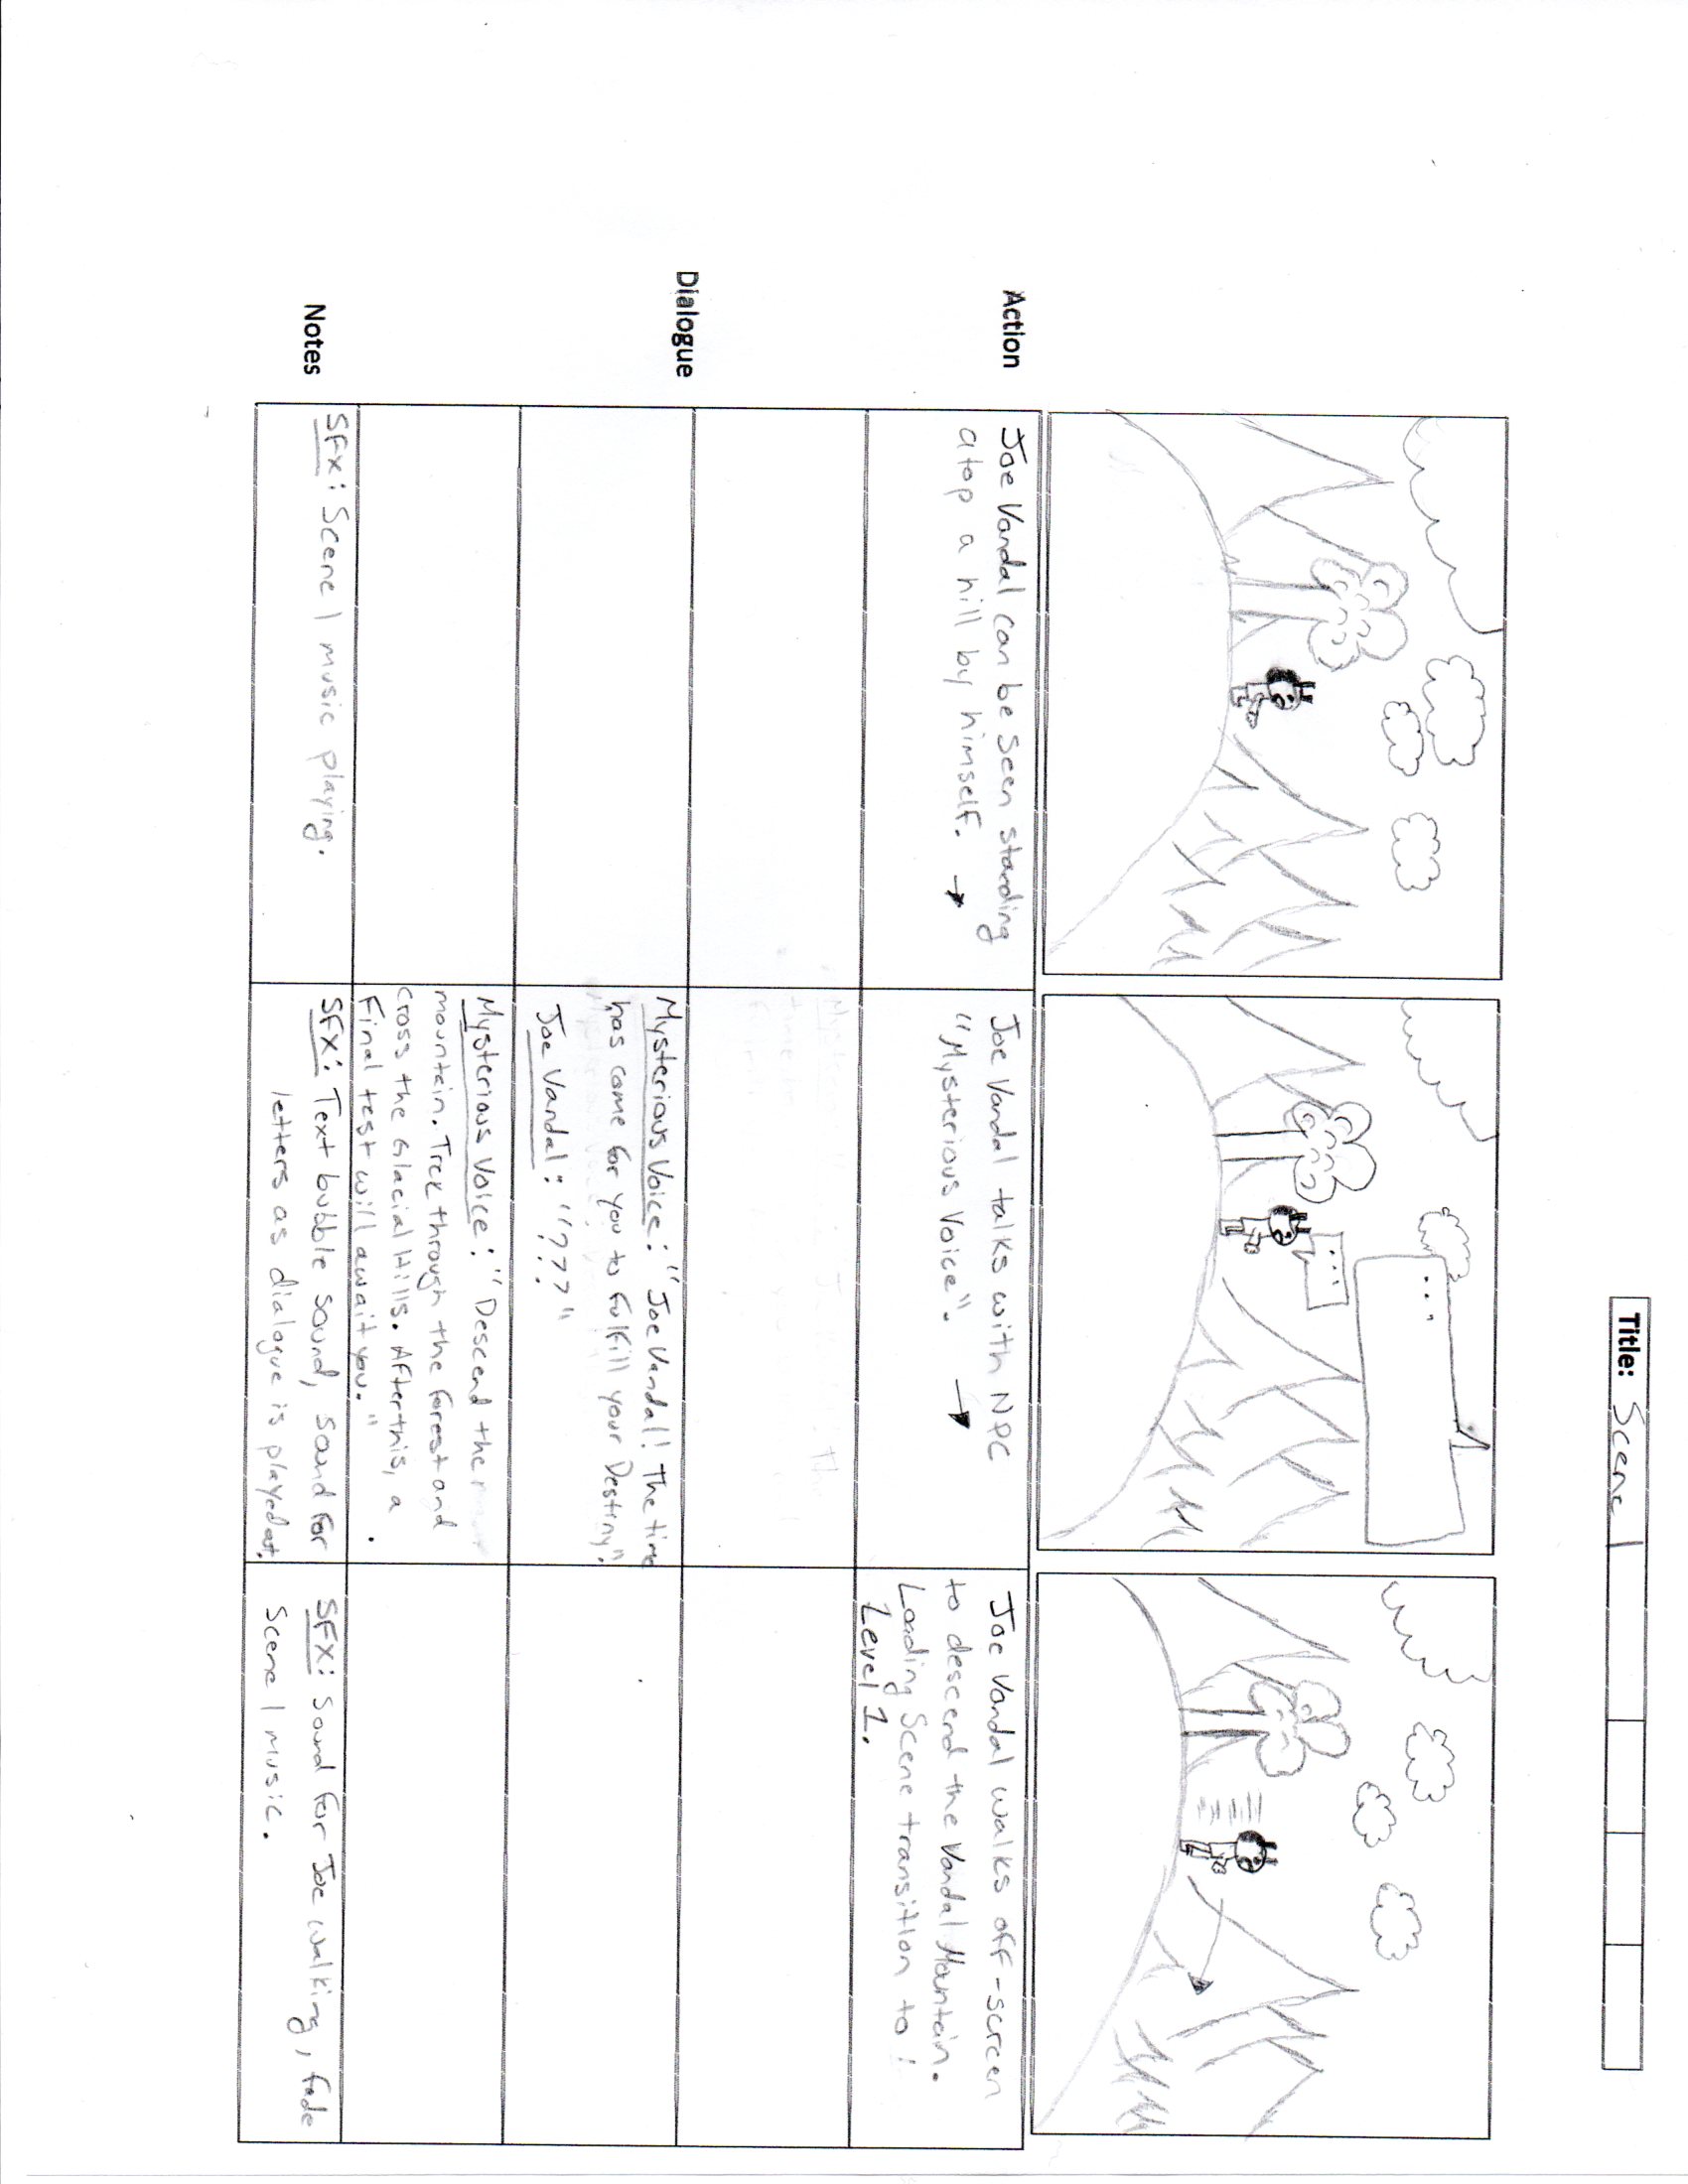 Title: Scene 1
...
...
Action
Joe Vandal can be seen standing
atop a hill by himself. →
Joe Vandal talks with NPC
"Mysterious Voice". →
Joe Vandal walks off-screen
to descend the Vandal Mountain.
Loading Scene transition to :
Level 1.
Dialogue
Mysterious Voice: "Joe Vandal! The time
has come for you to fulfill your Destiny".
Joe Vandal: "???"
Mysterious Voice: "Descend the
mountain. Trek through the forest and
cross the Glacial Hills. After this, a
Final test will await you."
Notes
SFX: Scene 1 music playing.
SFX: Text bubble sound, sound for
letters as dialogue is played out.
SFX: Sound for Joe walking, fade
Scene 1 music.